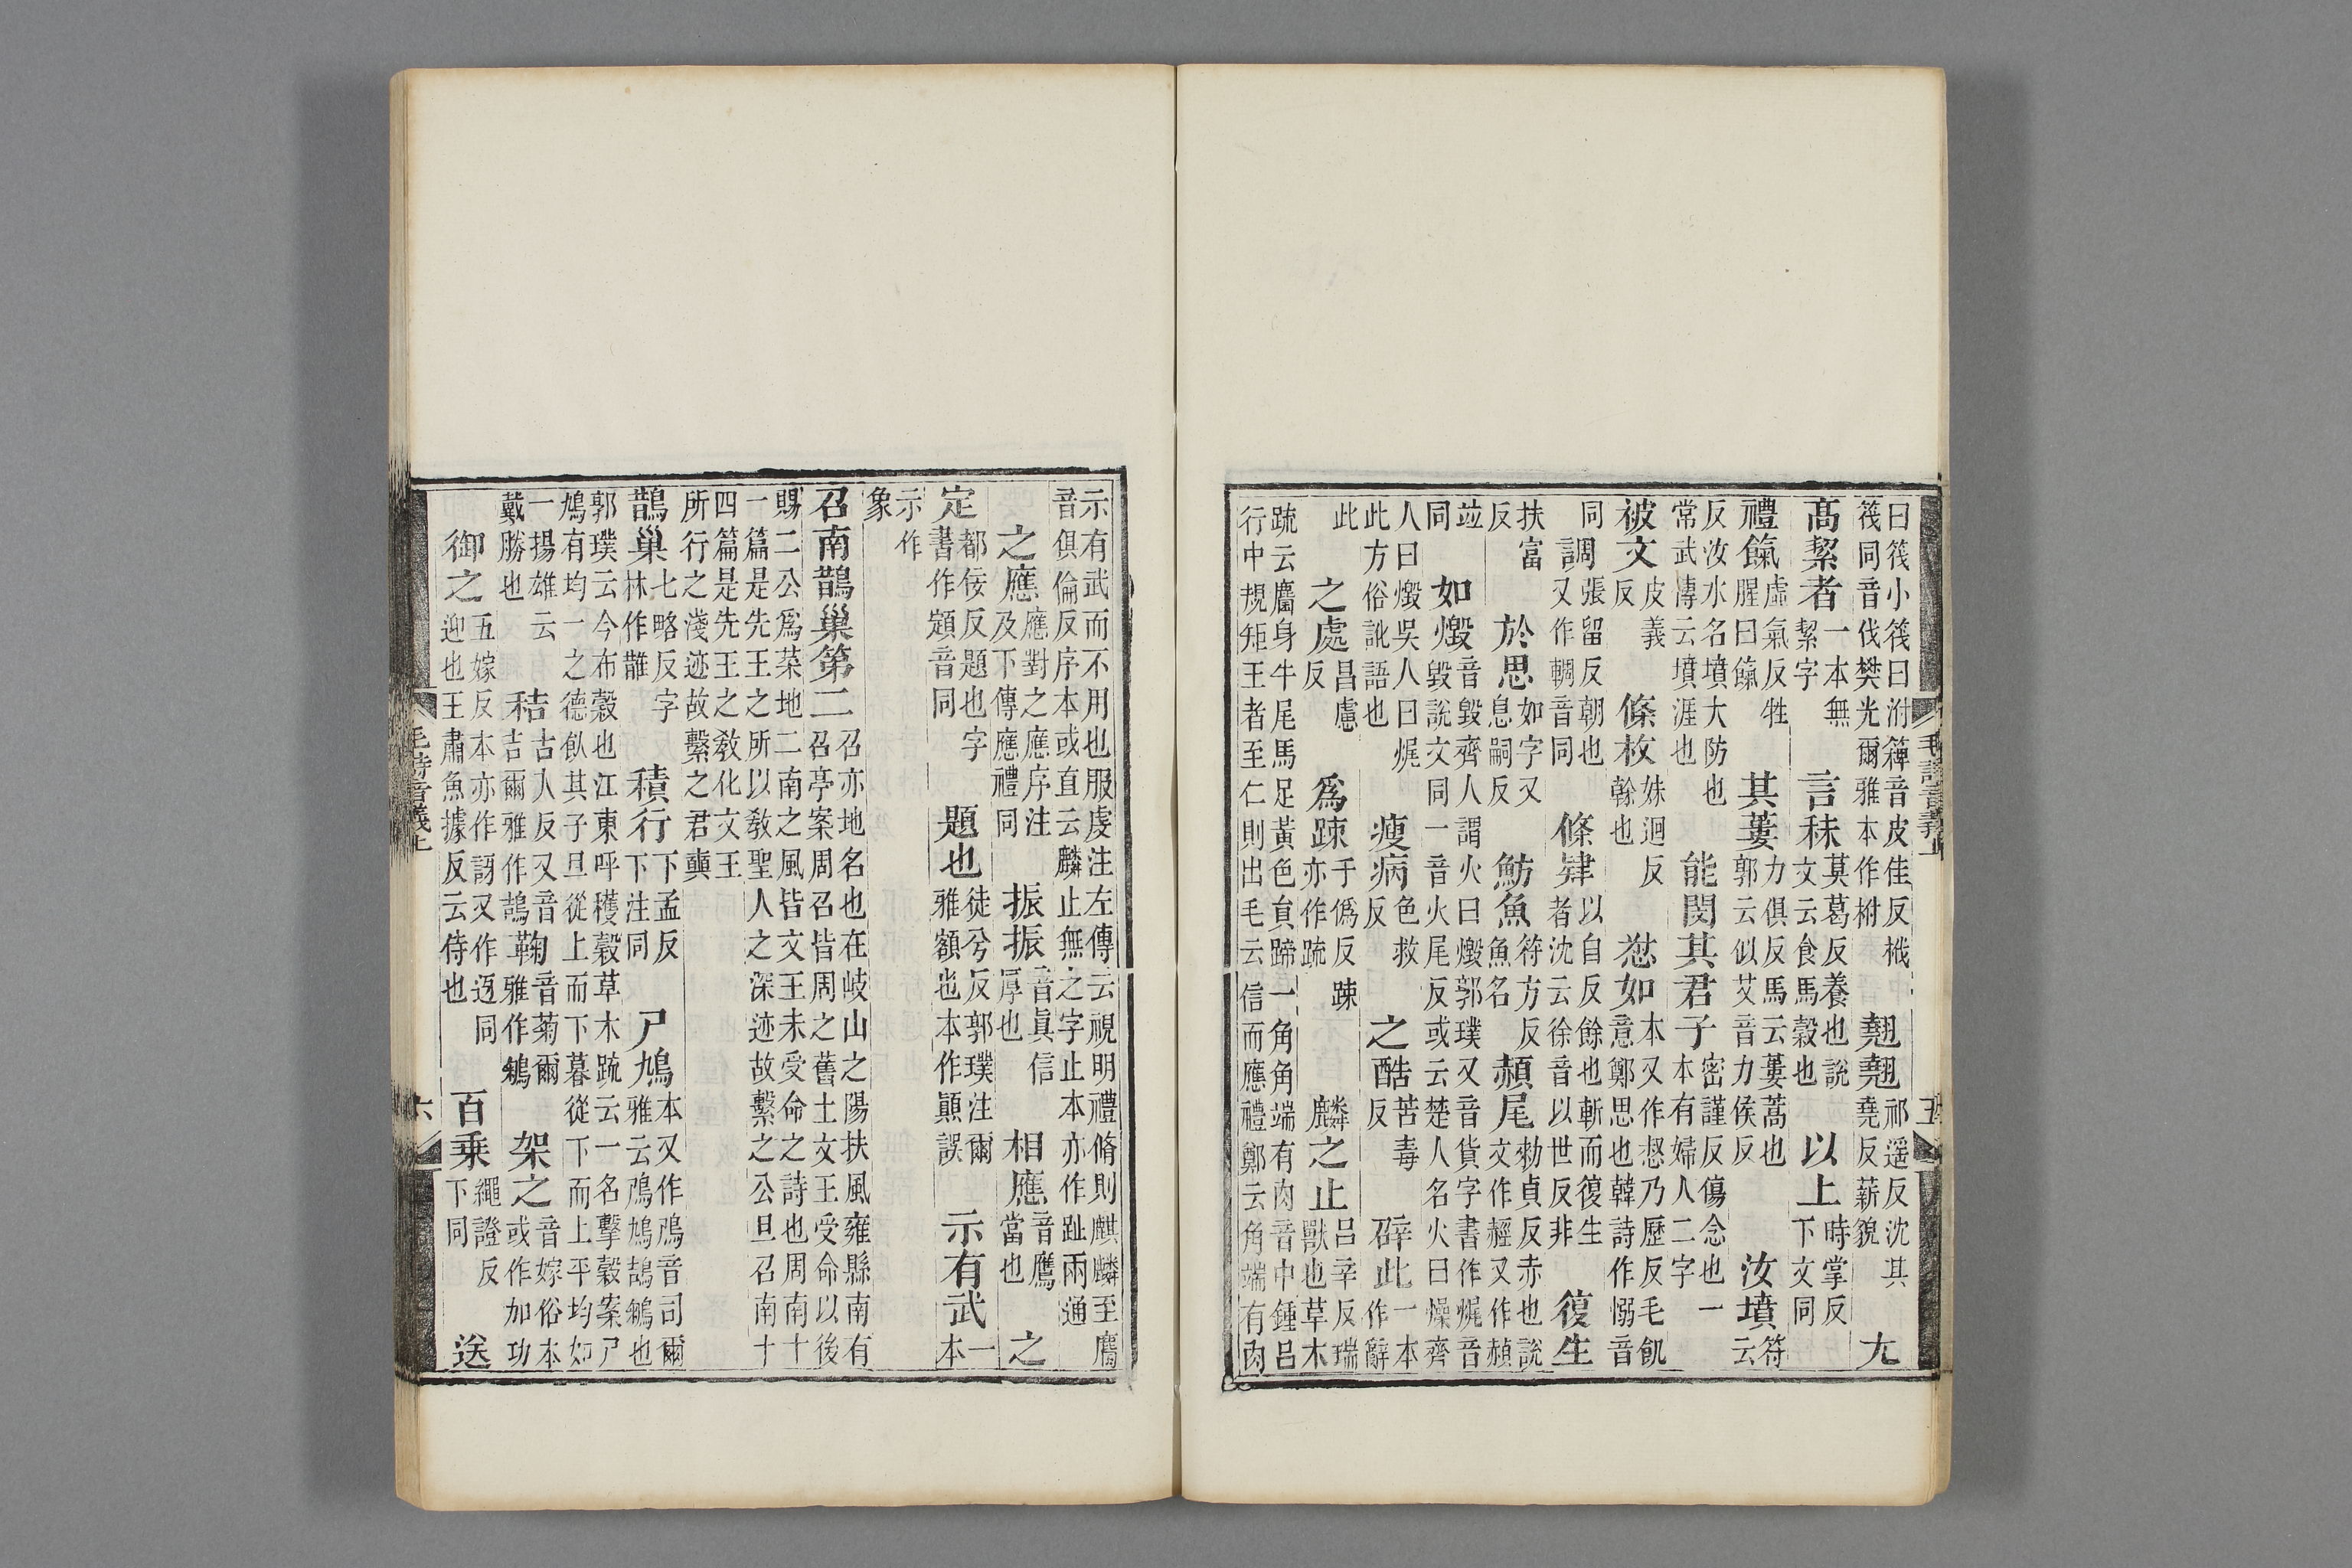 曰筏小筏曰泭篺音皮佳反橃筏同音伐樊光爾雅本作柎翹翹祁遥反沈其堯反薪貌尢
高絜者一本無絜字言秣莫葛反養也説文云食馬穀也以上時掌反下文同
禮餼虛氣反牲腥曰餼其蔞力俱反馬云蔞蒿也郭云似艾音力侯反汝墳符云
反汝水名墳大防也常武傳云墳涯也能閔其君子密謹反傷念也一本有婦人二字
被文皮義反條枚妹迴反榦也惄如本又作愵乃歷反毛飢意鄭思也韓詩作愵音
同調張留反朝也又作輖音同條肄以自反餘也斬而復生者沈云徐音以世反非復生
扶富反於思如字又息嗣反魴魚符方反魚名赬尾勑貞反赤也説文作䞓又作赪
竝同如燬音毀齊人謂火曰燬郭璞又音貨字書作㷄音毀説文同一音火尾反或云楚人名火曰燥齊
人曰燬吳人曰㷄此方俗訛語也瘦病色救反之酷苦毒反辟此一本作辭
此之處昌慮反爲踈于僞反踈亦作疏麟之止吕辛反瑞獸也草木
疏云麕身牛尾馬足黃色員蹄一角角端有肉音中鍾吕行中規矩王者至仁則出毛云信而應禮鄭云角端有肉
毛詩音義上
五
示有武而不用也服虔注左傳云視明禮脩則麒麟至麕音俱倫反序本或直云麟止無之字止本亦作趾兩通
之應應對之應序注及下傳應禮同振振音眞信厚也相應音鷹當也之
定都佞反題也字書作顁音同題也徒兮反郭璞注爾雅額也本作顚誤示有武一本
示作象
召南鵲巢第二召亦地名也在岐山之陽扶風雍縣南有召亭案周召皆周之舊土文王受命以後
賜二公爲菜地二南之風皆文王未受命之詩也周南十一篇是先王之所以敎聖人之深迹故繫之公旦召南十
四篇是先王之敎化文王所行之淺迹故繫之君奭
鵲巢七略反字林作䧿積行下孟反下注同尸鳩本又作鳲音司爾雅云鳲鳩鴶鵴也
郭璞云今布穀也江東呼穫穀草木疏云一名擊穀案尸鳩有均一之德飤其子旦從上而下暮從下而上平均如
一揚雄云戴勝也秸古八反又音吉爾雅作鴶鞠音菊爾雅作鵴架之音嫁俗本或作加功
御之五嫁反本亦作訝又作迓同迎也王肅魚據反云侍也百乘繩證反下同送
毛詩音義上
六